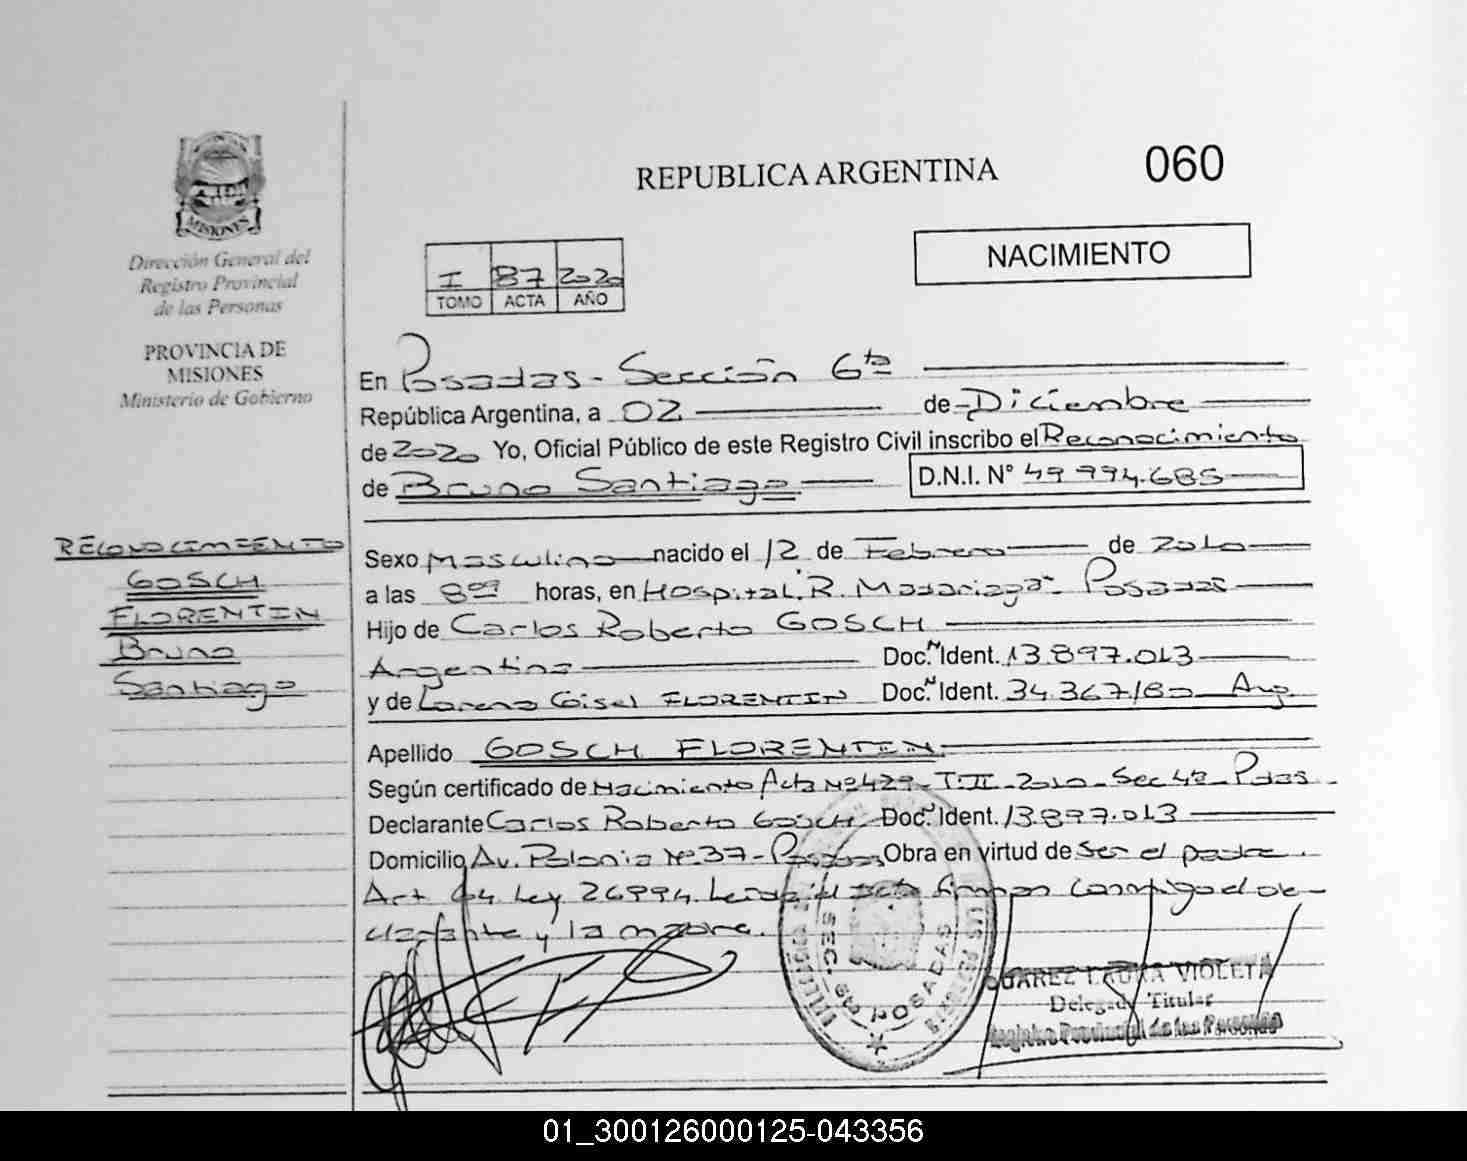 REPUBLICA ARGENTINA
060
NACIMIENTO
I 87 2020
TOMO ACTA AÑO
MISIONES
Dirección General del
Registro Provincial
de las Personas
PROVINCIA DE
MISIONES
Ministerio de Gobierno
En Posadas - Sección 6ta
República Argentina, a 02 de Diciembre
de 2020 Yo, Oficial Público de este Registro Civil inscribo el Reconocimiento
de Bruno Santiago D.N.I. N° 49.994.685
RECONOCIMIENTO
GOSCH
FLORENTIN
Bruno
Santiago
Sexo Masculino nacido el 12 de Febrero de 2010
a las 8 horas, en Hospital R. Madariaga - Posadas
Hijo de Carlos Roberto GOSCH
Argentino Doc. Ident. 13.897.013
y de Lorena Gisel FLORENTIN Doc. Ident. 34.367.180 Arg.
Apellido GOSCH FLORENTIN
Según certificado de Nacimiento Acta Nº 429 - T.II - 2010 - Sec 4ª - Pdas
Declarante Carlos Roberto Gosch Doc. Ident. 13.897.013
Domicilio Av. Polonia Nº 37 - Posadas Obra en virtud de ser el padre.
Art. 64 Ley 26994. Leída el acta firman conmigo el de-
clarante y la madre.
SEC. POSADAS
SUAREZ LAURA VIOLETA
Delegada Titular
Registro Provincial de las Personas
01_300126000125-043356